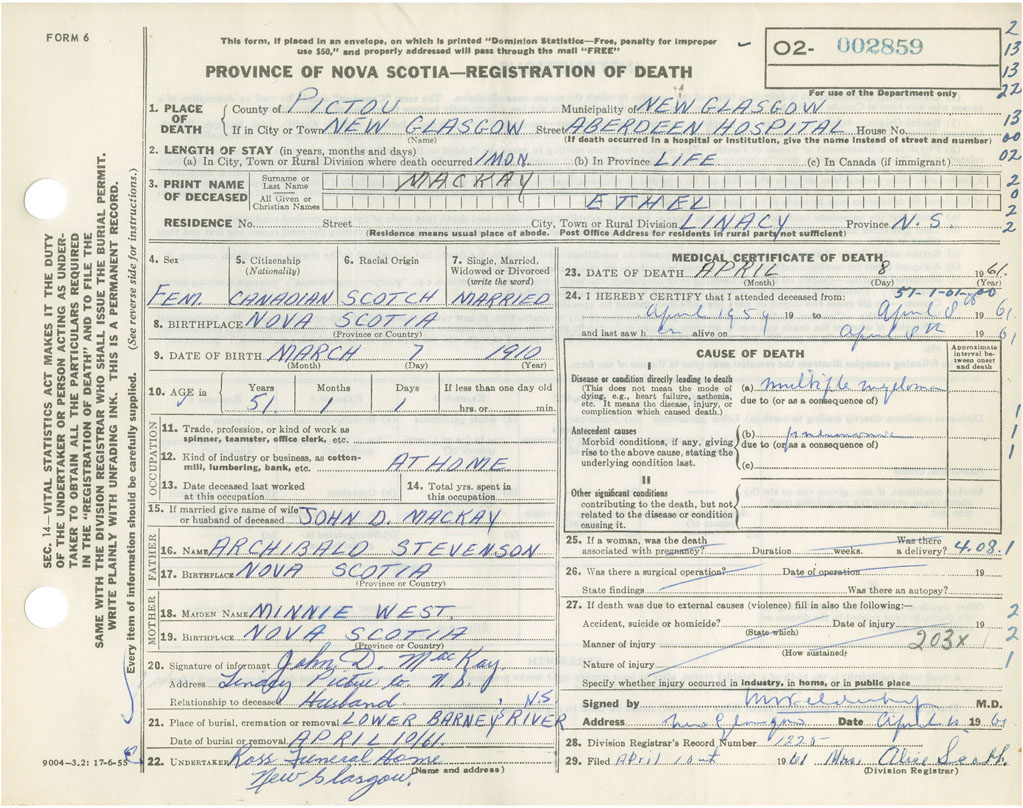 FORM 6
This form, if placed in an envelope, on which is printed "Dominion Statistics—Free, penalty for improper
use $50," and properly addressed will pass through the mail "FREE"
02- 002859
For use of the Department only
PROVINCE OF NOVA SCOTIA—REGISTRATION OF DEATH
1. PLACE OF DEATH { County of PICTOU Municipality of NEW GLASGOW
If in City or Town NEW GLASGOW Street ABERDEEN HOSPITAL House No.
(Name) (If death occurred in a hospital or institution, give the name instead of street and number)
2. LENGTH OF STAY (in years, months and days)
(a) In City, Town or Rural Division where death occurred 1 MON. (b) In Province LIFE (c) In Canada (if immigrant)
3. PRINT NAME OF DECEASED
Surname or Last Name MACKAY
All Given or Christian Names ETHEL
RESIDENCE No. Street City, Town or Rural Division LINACY Province N.S.
(Residence means usual place of abode. Post Office Address for residents in rural parts not sufficient)
2
13
13
22
13
00
02
2
0
2
2
SEC. 14—VITAL STATISTICS ACT MAKES IT THE DUTY
OF THE UNDERTAKER OR PERSON ACTING AS UNDER-
TAKER TO OBTAIN ALL THE PARTICULARS REQUIRED
IN THE "REGISTRATION OF DEATH" AND TO FILE THE
SAME WITH THE DIVISION REGISTRAR WHO SHALL ISSUE THE BURIAL PERMIT.
WRITE PLAINLY WITH UNFADING INK. THIS IS A PERMANENT RECORD.
Every item of information should be carefully supplied. (See reverse side for instructions.)
4. Sex FEM.
5. Citizenship (Nationality) CANADIAN
6. Racial Origin SCOTCH
7. Single, Married, Widowed or Divorced (write the word) MARRIED
8. BIRTHPLACE NOVA SCOTIA
(Province or Country)
9. DATE OF BIRTH MARCH 7 1910
(Month) (Day) (Year)
10. AGE in Years 51. Months 1 Days 1 If less than one day old hrs. or min.
OCCUPATION
11. Trade, profession, or kind of work as
spinner, teamster, office clerk, etc.
12. Kind of industry or business, as cotton-
mill, lumbering, bank, etc. AT HOME
13. Date deceased last worked
at this occupation
14. Total yrs. spent in
this occupation
15. If married give name of wife
or husband of deceased JOHN D. MACKAY
FATHER
16. NAME ARCHIBALD STEVENSON
17. BIRTHPLACE NOVA SCOTIA
(Province or Country)
MOTHER
18. MAIDEN NAME MINNIE WEST.
19. BIRTHPLACE NOVA SCOTIA
(Province or Country)
20. Signature of informant John D. MacKay.
Address Pictou Co. N.S.
Relationship to deceased Husband.
21. Place of burial, cremation or removal LOWER BARNEYS RIVER N.S.
Date of burial or removal APRIL 10/61.
22. UNDERTAKER Ross Funeral Home
New Glasgow. (Name and address)
9004—3.2: 17-6-55
MEDICAL CERTIFICATE OF DEATH
23. DATE OF DEATH APRIL 8 1961.
(Month) (Day) (Year)
51-1-01-00
24. I HEREBY CERTIFY that I attended deceased from:
April 1959 19 to April 8 1961
and last saw her alive on April 8th 1961
CAUSE OF DEATH
Approximate interval between onset and death
I
Disease or condition directly leading to death
(This does not mean the mode of
dying, e.g., heart failure, asthenia,
etc. It means the disease, injury, or
complication which caused death.)
(a) multiple myeloma
due to (or as a consequence of)
Antecedent causes
Morbid conditions, if any, giving
rise to the above cause, stating the
underlying condition last.
(b)
due to (or as a consequence of)
(c)
II
Other significant conditions
contributing to the death, but not
related to the disease or condition
causing it.
1
1
1
25. If a woman, was the death
associated with pregnancy? Duration weeks. Was there a delivery? 4.08.1
26. Was there a surgical operation? Date of operation 19
State findings Was there an autopsy?
27. If death was due to external causes (violence) fill in also the following:—
Accident, suicide or homicide? Date of injury 19 2
(State which)
Manner of injury 203X 2
(How sustained)
Nature of injury 1
Specify whether injury occurred in industry, in home, or in public place
Signed by M.D.
Address New Glasgow Date April 1961
28. Division Registrar's Record Number 1225
29. Filed April 10th 1961 Mrs. Alice Scott.
(Division Registrar)